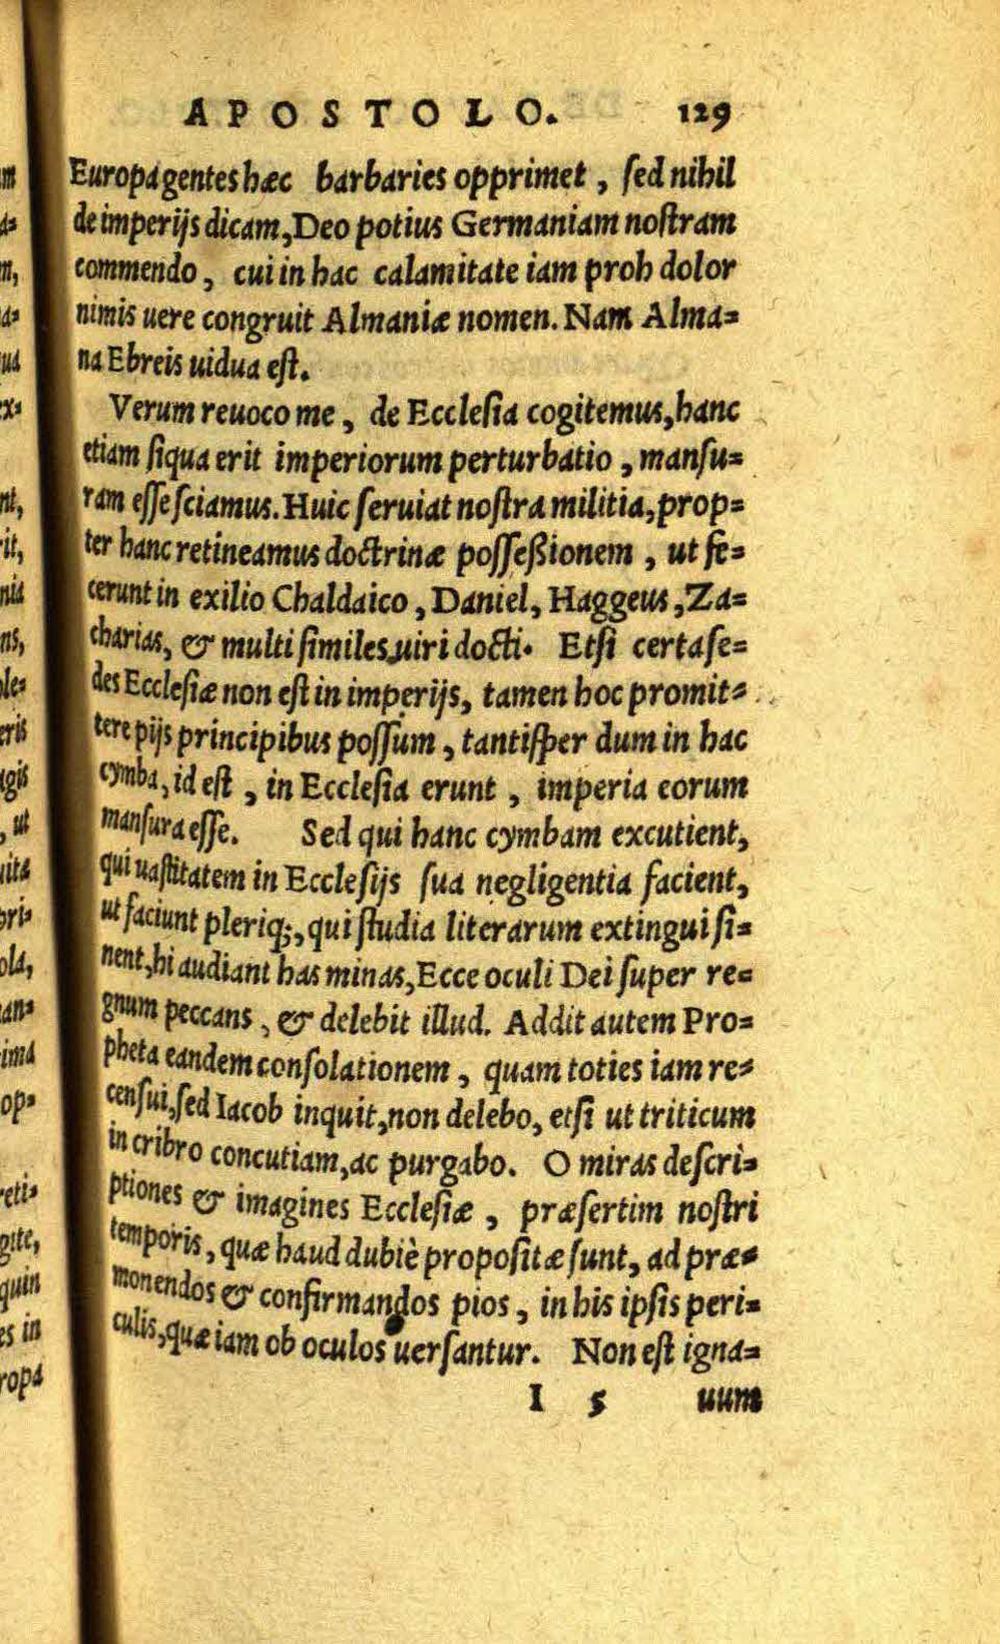 APOSTOLO. 129
Europa gentes hæc barbaries opprimet, sed nihil
de imperijs dicam, Deo potius Germaniam nostram
commendo, cui in hac calamitate iam proh dolor
nimis uere congruit Almaniæ nomen. Nam Alma=
na Ebreis uidua est.
Verum reuoco me, de Ecclesia cogitemus, hanc
etiam siqua erit imperiorum perturbatio, mansu=
ram esse sciamus. Huic seruiat nostra militia, prop=
ter hanc retineamus doctrinæ posseßionem, ut fe=
cerunt in exilio Chaldaico, Daniel, Haggeus, Za=
charias, & multi similes uiri docti. Etsi certa se=
des Ecclesiæ non est in imperijs, tamen hoc promit=
tere pijs principibus possum, tantisper dum in hac
cymba, id est, in Ecclesia erunt, imperia eorum
mansura esse. Sed qui hanc cymbam excutient,
qui uastitatem in Ecclesijs sua negligentia facient,
ut faciunt pleriq;, qui studia literarum extingui si=
nent, hi audiant has minas, Ecce oculi Dei super re=
gnum peccans, & delebit illud. Addit autem Pro=
pheta eandem consolationem, quam toties iam re=
censui, sed Iacob inquit, non delebo, etsi ut triticum
in cribro concutiam, ac purgabo. O miras descri=
ptiones & imagines Ecclesiæ, præsertim nostri
temporis, quæ haud dubiè propositæ sunt, ad præ=
monendos & confirmandos pios, in his ipsis peri=
culis, quæ iam ob oculos uersantur. Non est igna=
I 5 uum